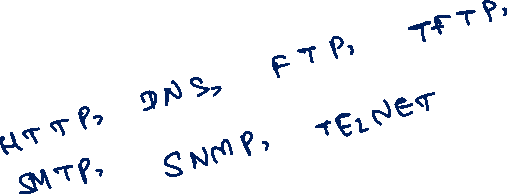 HTTP, DNS, FTP, TFTP,
SMTP, SNMP, TELNET